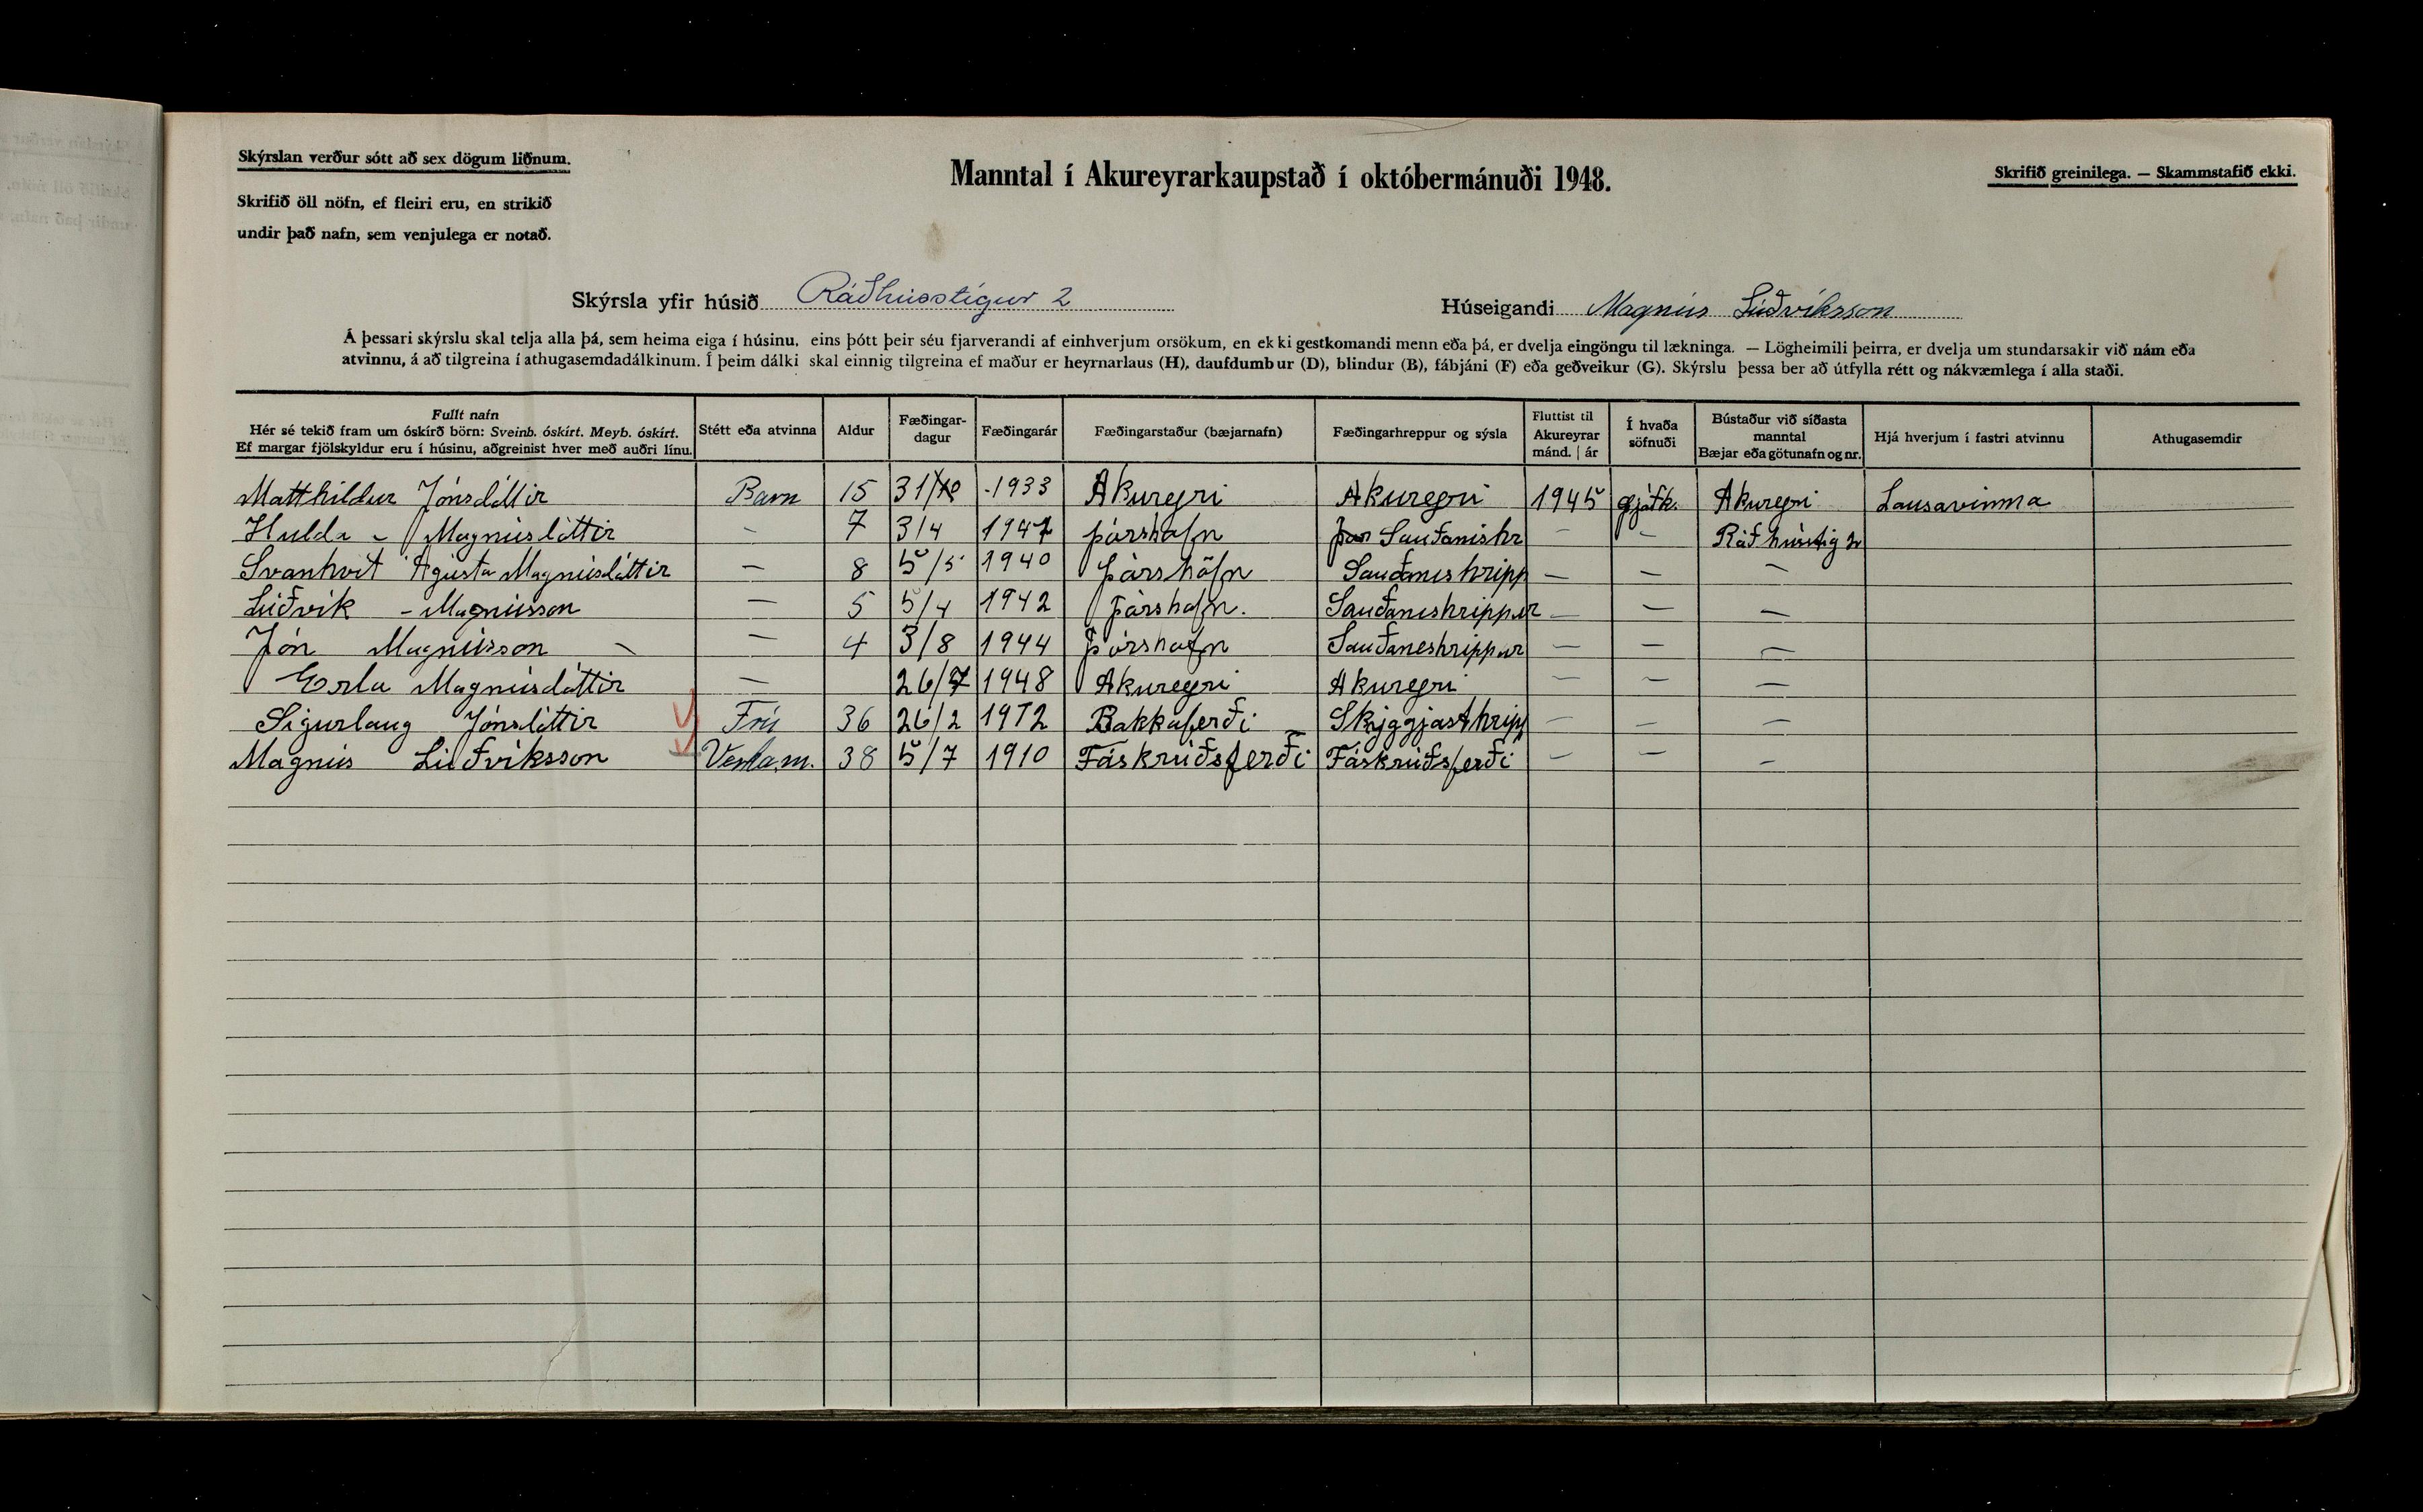 Skýrslan verður sótt að sex dögum liðnum.
Skrifið öll nöfn, ef fleiri eru, en strikið
undir það nafn, sem venjulega er notað.
Manntal í Akureyrarkaupstað í októbermánuði 1948.
Skrifið greinilega. — Skammstafið ekki.
Skýrsla yfir húsið Ráðhússtígur 2
Húseigandi Magnús Lúðvíksson
Á þessari skýrslu skal telja alla þá, sem heima eiga í húsinu, eins þótt þeir séu fjarverandi af einhverjum orsökum, en ekki gestkomandi menn eða þá, er dvelja eingöngu til lækninga. — Lögheimili þeirra, er dvelja um stundarsakir við nám eða
atvinnu, á að tilgreina í athugasemdadálkinum. Í þeim dálki skal einnig tilgreina ef maður er heyrnarlaus (H), daufdumbur (D), blindur (B), fábjáni (F) eða geðveikur (G). Skýrslu þessa ber að útfylla rétt og nákvæmlega í alla staði.
Fullt nafn
Hér sé tekið fram um óskírð börn: Sveinb. óskírt. Meyb. óskírt.
Ef margar fjölskyldur eru í húsinu, aðgreinist hver með auðri línu.
Stétt eða atvinna
Aldur
Fæðingar-
dagur
Fæðingarár
Fæðingarstaður (bæjarnafn)
Fæðingarhreppur og sýsla
Fluttist til
Akureyrar
mánd. | ár
Í hvaða
söfnuði
Bústaður við síðasta
manntal
Bæjar eða götunafn og nr.
Hjá hverjum í fastri atvinnu
Athugasemdir
Matthildur Jónsdóttir Barn 15 31/10 1933 Akureyri Akureyri 1945 þjóðk. Akureyri Lausavinna
Hulda - Magnúsdóttir — 7 3/4 1947 þórshafn Sauðanishr — — Ráðhústig 2
Svanhvít Ágústa Magnúsdóttir — 8 5/5 1940 þórshöfn Sauðaneshripp — — —
Lúðvík - Magnússon — 5 5/4 1942 þórshafn. Sauðaneshrippur — — —
Jón Magnússon — 4 3/8 1944 Þórshafn Sauðaneshrippur — — —
Erla Magnúsdóttir — 26/7 1948 Akureyri Akureyri — — —
Sigurlaug Jónsdóttir Frú 36 26/2 1912 Bakkaferði Skyggjasthripp — — —
Magnús Lúðvíksson Verka.m. 38 5/7 1910 Fáskrúðsferði Fáskrúðsferði — — —